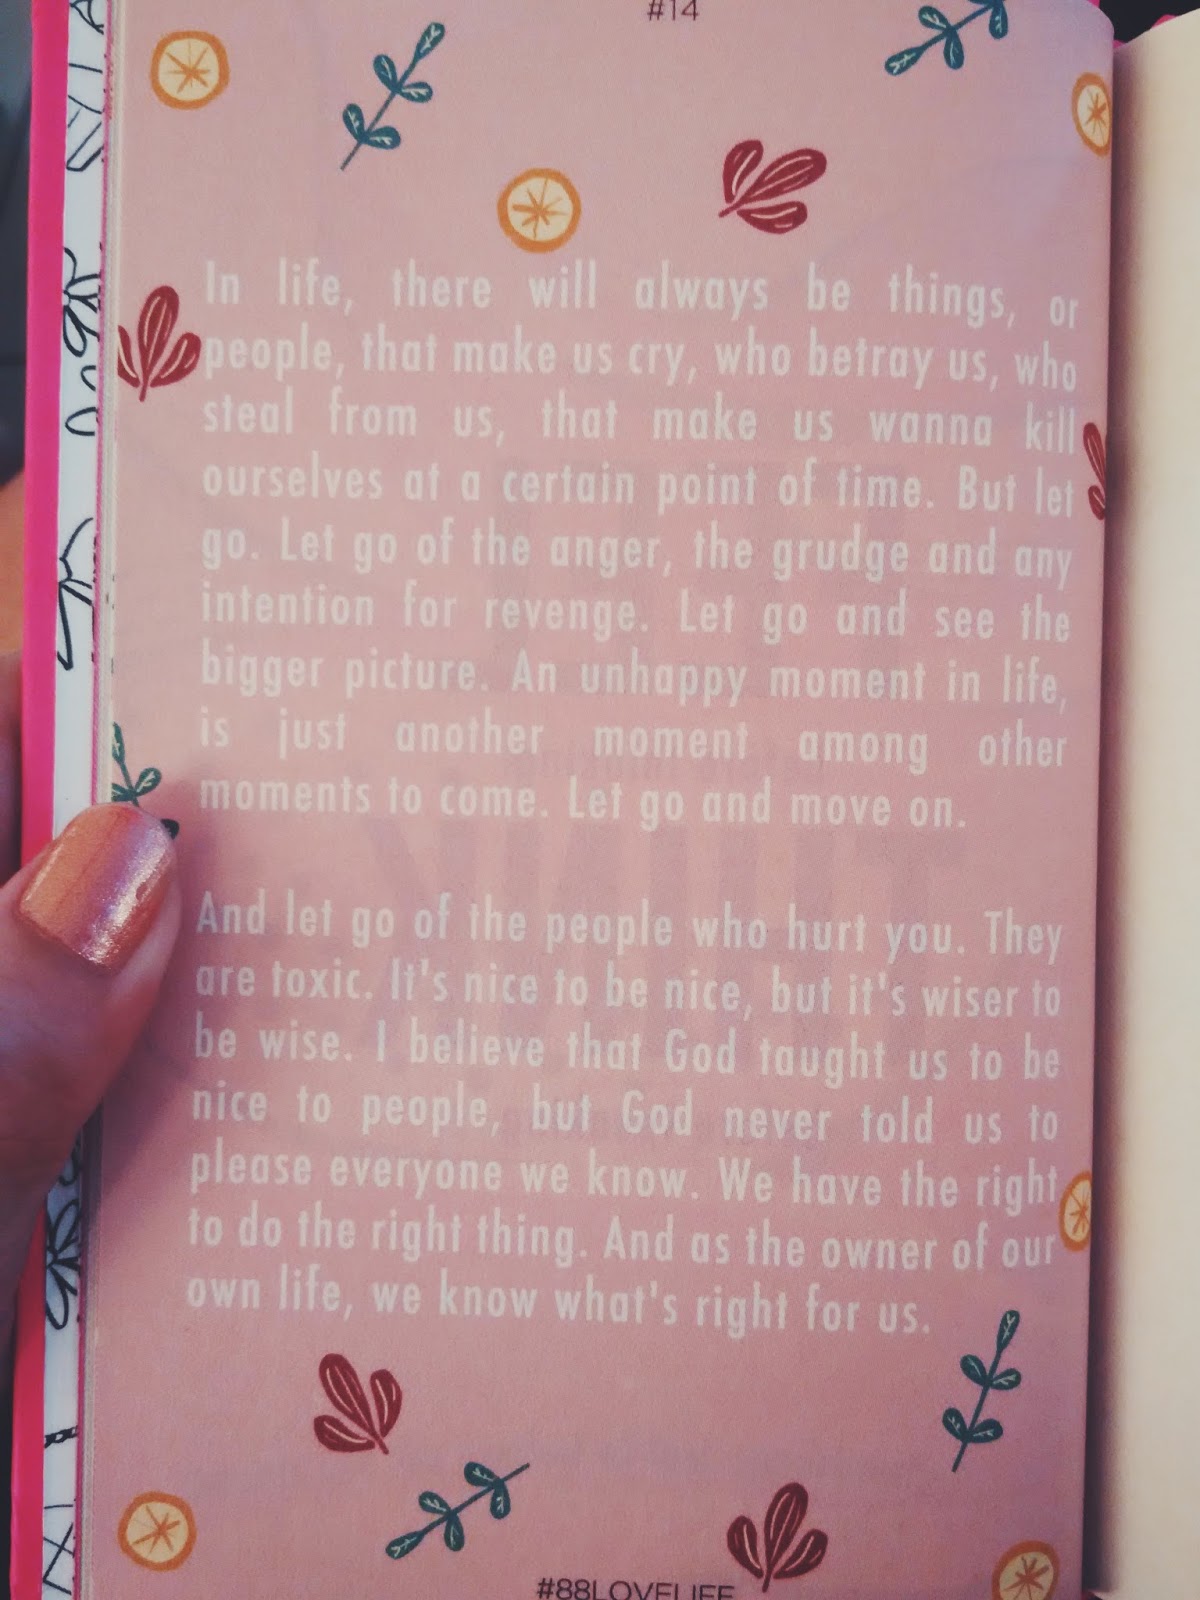 #14
In life, there will always be things, or
people, that make us cry, who betray us, who
steal from us, that make us wanna kill
ourselves at a certain point of time. But let
go. Let go of the anger, the grudge and any
intention for revenge. Let go and see the
bigger picture. An unhappy moment in life,
is just another moment among other
moments to come. Let go and move on.
And let go of the people who hurt you. They
are toxic. It's nice to be nice, but it's wiser to
be wise. I believe that God taught us to be
nice to people, but God never told us to
please everyone we know. We have the right
to do the right thing. And as the owner of our
own life, we know what's right for us.
#88LOVELIFE